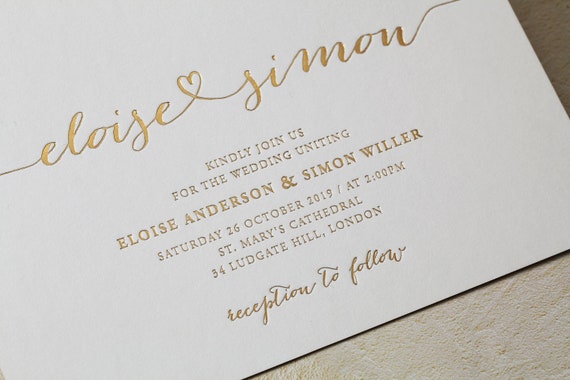 eloise simon
KINDLY JOIN US
FOR THE WEDDING UNITING
ELOISE ANDERSON & SIMON WILLER
SATURDAY 26 OCTOBER 2019 / AT 2:00PM
ST. MARY'S CATHEDRAL
34 LUDGATE HILL, LONDON
reception to follow